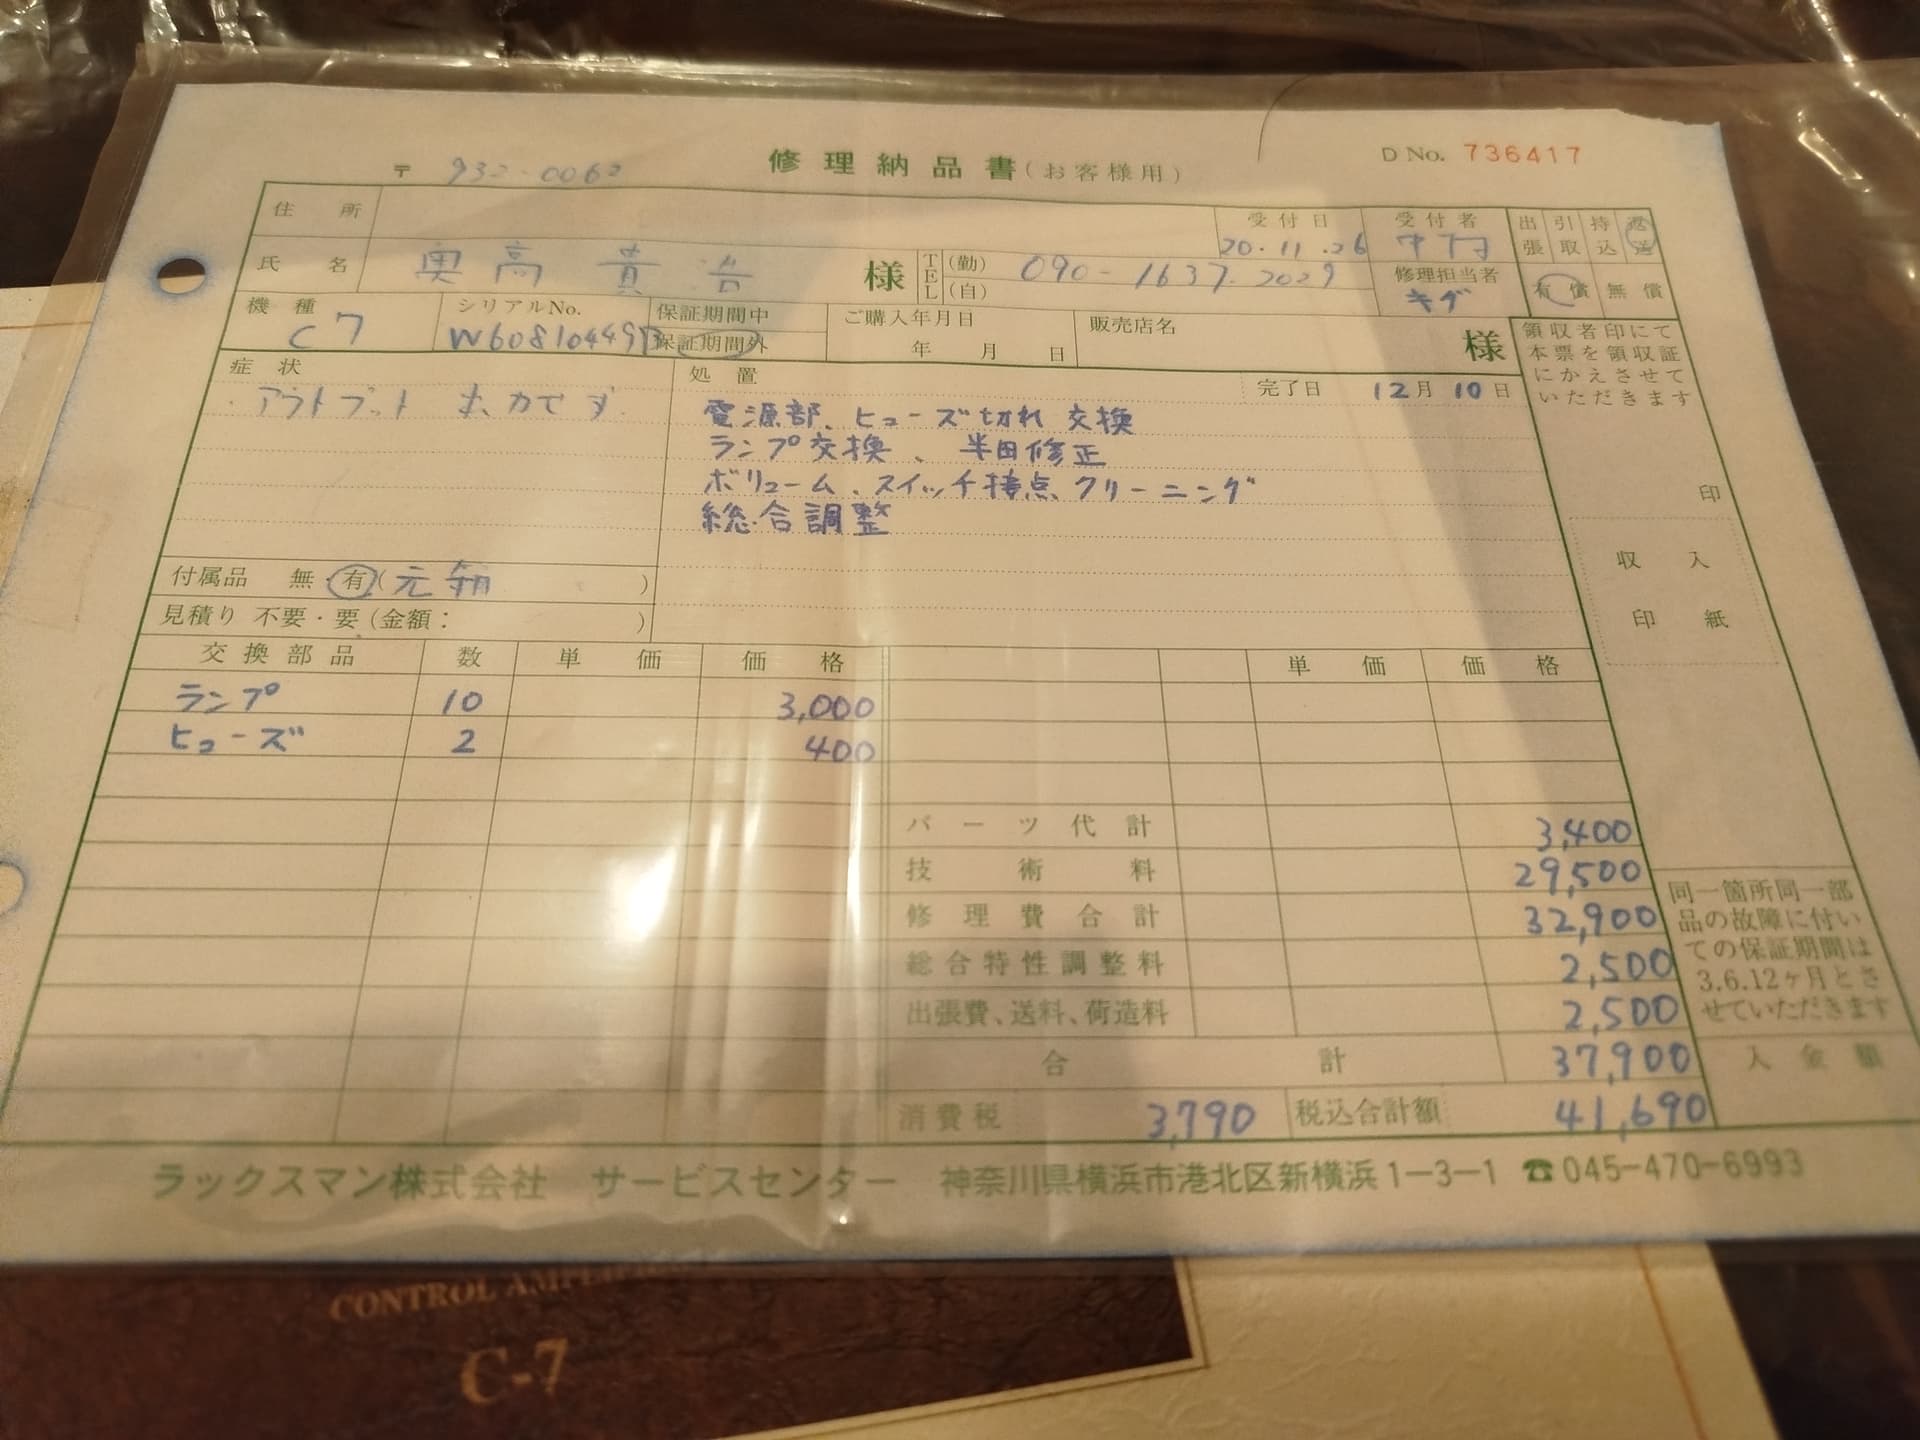 修理納品書(お客様用)
D No. 736417
〒 932-0062
住所
受付日 20.11.26
受付者
出張 引取 持込 返送
氏名 奥高 貴治 様
TEL (勤) (自) 090-1637-2029
修理担当者 キダ
有償 無償
機種 C7
シリアルNo. W60810449
保証期間中
保証期間外
ご購入年月日 年 月 日
販売店名 様
領収者印にて
本票を領収証
にかえさせて
いただきます
印
収入
印紙
症状
アウトプット 出力でず
処置
完了日 12月10日
電源部、ヒューズ切れ 交換
ランプ交換、半田修正
ボリューム、スイッチ接点クリーニング
総合調整
付属品 無・有(元箱)
見積り 不要・要(金額: )
交換部品 数 単価 価格 単価 価格
ランプ 10 3,000
ヒューズ 2 400
パーツ代計 3,400
技術料 29,500
修理費合計 32,900
総合特性調整料 2,500
出張費、送料、荷造料 2,500
合計 37,900
消費税 3,790 税込合計額 41,690
同一箇所同一部
品の故障に付い
ての保証期間は
3.6.12ヶ月とさ
せていただきます
入金額
ラックスマン株式会社 サービスセンター 神奈川県横浜市港北区新横浜1-3-1 ☎045-470-6993
CONTROL
C-7